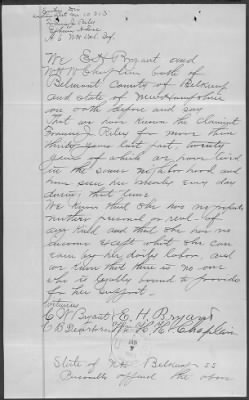 We E H Bryant and
Wm H H Chaplain both of
Belmont County of Belknap
and State of New Hampshire
on oath depose and say
That we have known the claimant
Frances J Kiley for more than
thirty years last past, twenty
years of which we have lived
in the same neighborhood and
have seen her nearly every day
during that time
We know that she has no property
neither personal or real of
any kind and that she has no
income except what she can
earn by her daily labor, and
we know that there is no one
who is legally bound to provide
for her support.
Witnesses
C W Bryant E. H. Bryant
C B Dearborn Wm H. H. Chaplain
State of NH Belknap ss
Personally appeared the above